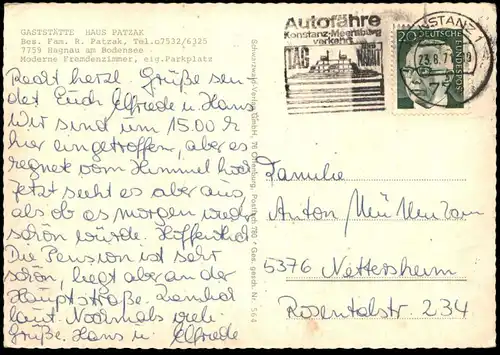 GASTSTÄTTE HAUS PATZAK
Bes. Fam. R. Patzak, Tel.o7532/6325
7759 Hagnau am Bodensee
Moderne Fremdenzimmer, eig.Parkplatz
Autofähre
Konstanz-Meersburg
verkehrt
TAG
NACHT
KONSTANZ 1
23.8.71
775
20
DEUTSCHE
BUNDESPOST
Recht herzl. Grüße sen-
det Euch Elfriede u. Hans
Wir sind um 15.00 h
hier eingetroffen, aber es
regnet vom Himmel hoch
Jetzt sieht es aber aus,
als ob es morgen wieder
schön würde. Hoffentlich
Die Pension ist sehr
schön, liegt aber an der
Hauptstraße. Ziemlich
laut. Nochmals viele
Grüße. Hans u. Elfriede
Schwarzwald-Verlag GmbH, 76 Offenburg, Postfach 780 * Ges. gesch. Nr. 564
Familie
Anton
5376 Nettersheim
Rosentalstr. 234